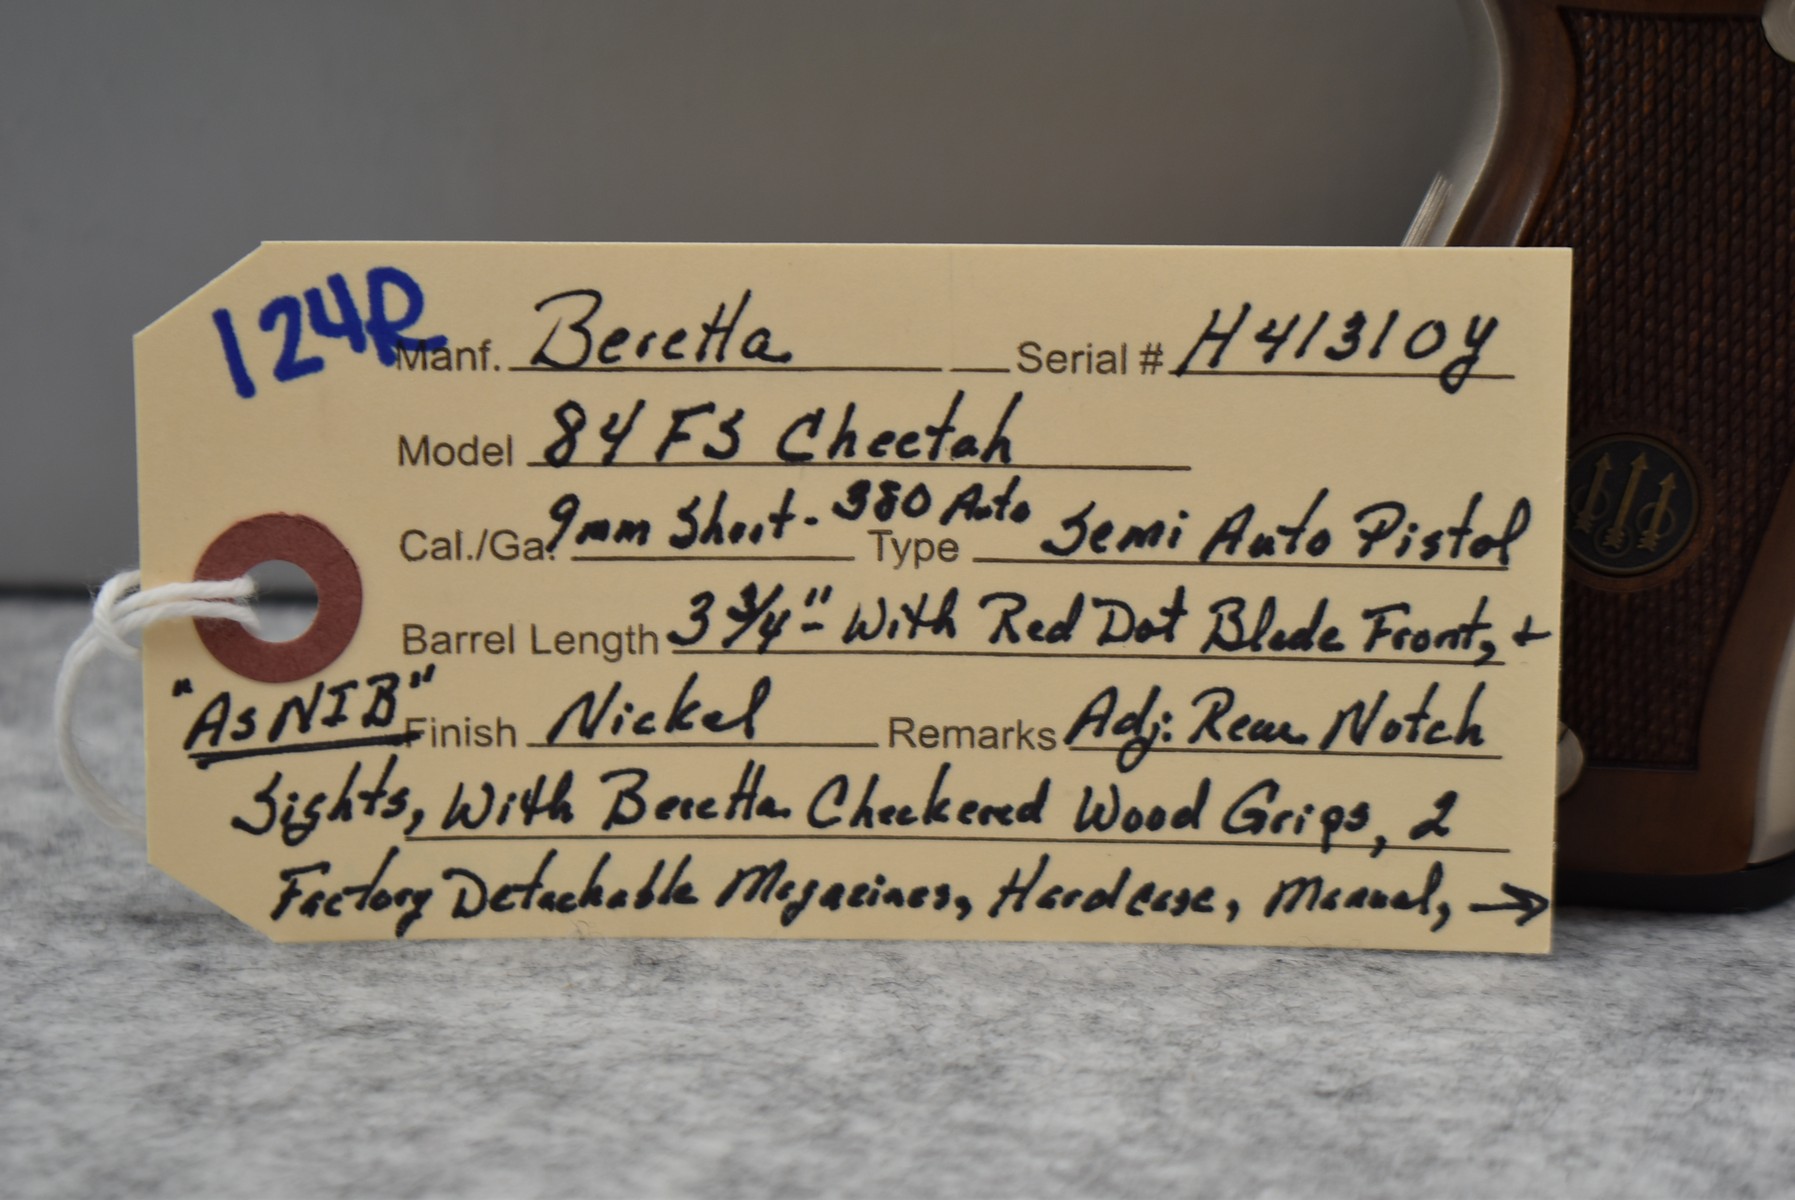 124R
Manf. Beretta Serial # H41310Y
Model 84 FS Cheetah
Cal./Ga. 9mm Short - 380 Auto Type Semi Auto Pistol
Barrel Length 3 3/4" - With Red Dot Blade Front, +
"As NIB" Finish Nickel Remarks Adj. Rear Notch
Sights, With Beretta Checkered Wood Grips, 2
Factory Detachable Magazines, Hardcase, Manual, →